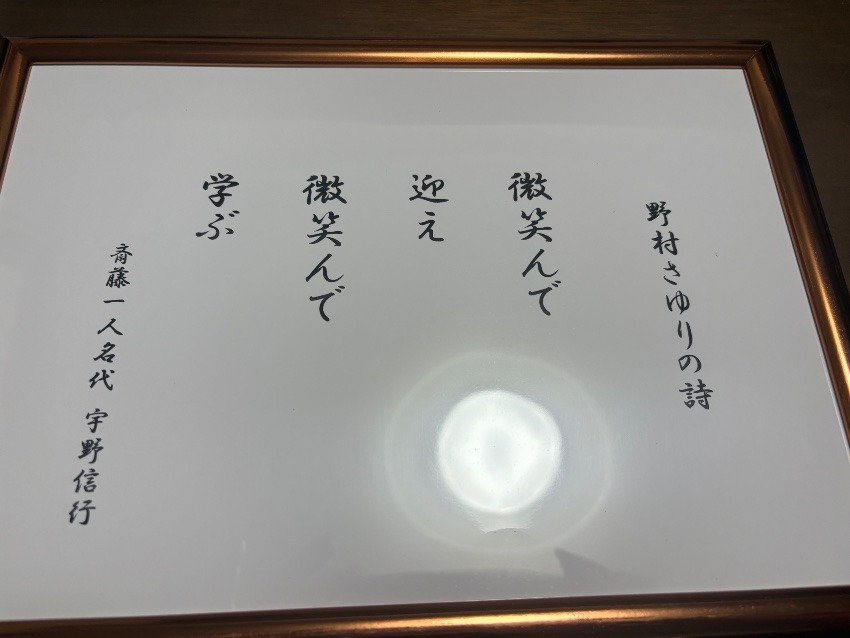 野村さゆりの詩
微笑んで
迎え
微笑んで
学ぶ
斎藤一人名代 宇野信行